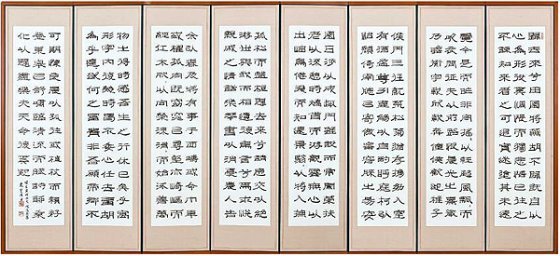 歸去來兮田園將蕪胡不歸既自以
心爲形役奚惆悵而獨悲悟已往之
不諫知來者之可追實迷途其未遠
覺今是而昨非舟搖搖以輕颺風飄
飄而吹衣問征夫以前路恨晨光之
熹微乃瞻衡宇載欣載奔僮僕歡迎稚子
候門三徑就荒松菊猶存携幼入室
有酒盈樽引壺觴以自酌眄庭柯以
怡顔倚南窓以寄傲審容膝之易安
園日涉以成趣門雖設而常關策扶
老以流憩時矯首而遐觀雲無心以
出岫鳥倦飛而知還景翳翳以將入撫
孤松而盤桓歸去來兮請息交以絶
遊世與我而相違復駕言兮焉求悅
親戚之情話樂琴書以消憂農人告
余以春及將有事于西疇或命巾車
或棹孤舟既窈窕以尋壑亦崎嶇而
經丘木欣欣以向榮泉涓涓而始流善萬
物之得時感吾生之行休已矣乎寓
形宇內復幾時曷不委心任去留胡
爲乎遑遑欲何之富貴非吾願帝鄕不
可期懷良辰以孤往或植杖而耘耔
登東皐以舒嘯臨淸流而賦詩聊乘
化以歸盡樂夫天命復奚疑